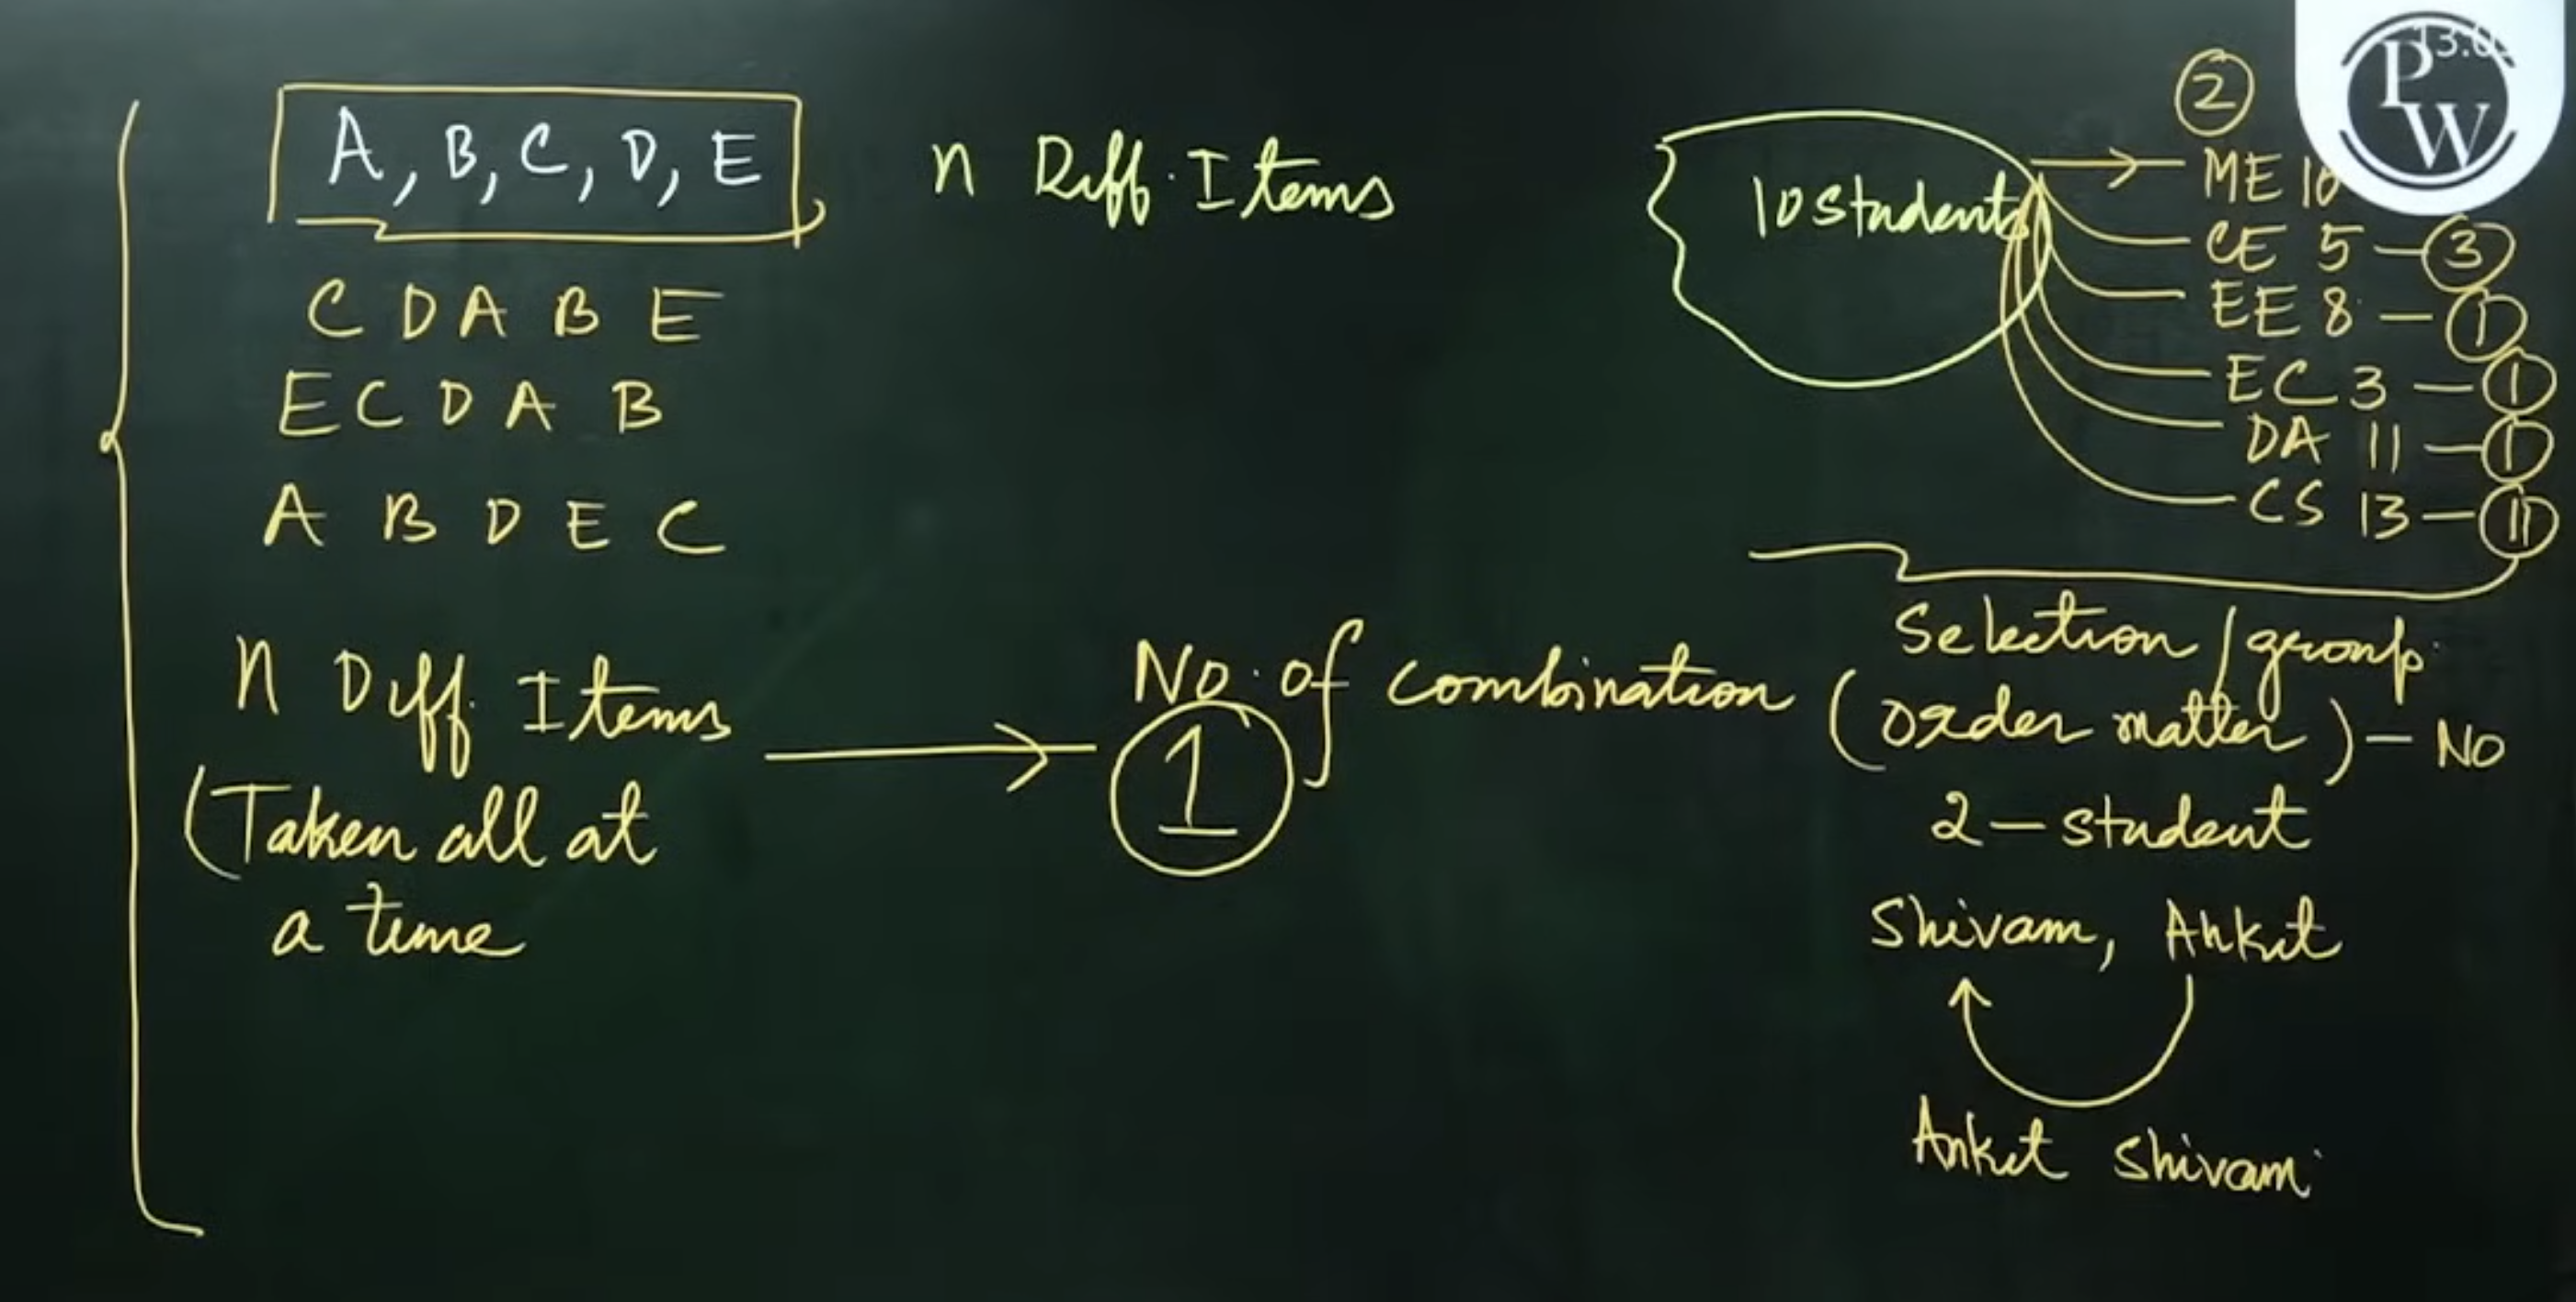 A, B, C, D, E
n Diff. Items
C D A B E
E C D A B
A B D E C
n Diff. Items
(Taken all at
a time
No. of combination
1
10 students
2
ME 10
CE 5 - 3
EE 8 - 1
EC 3 - 1
DA 11 - 1
CS 13 - 11
Selection / group
(order matter) - No
2 - student
Shivam, Ankit
Ankit Shivam
PW